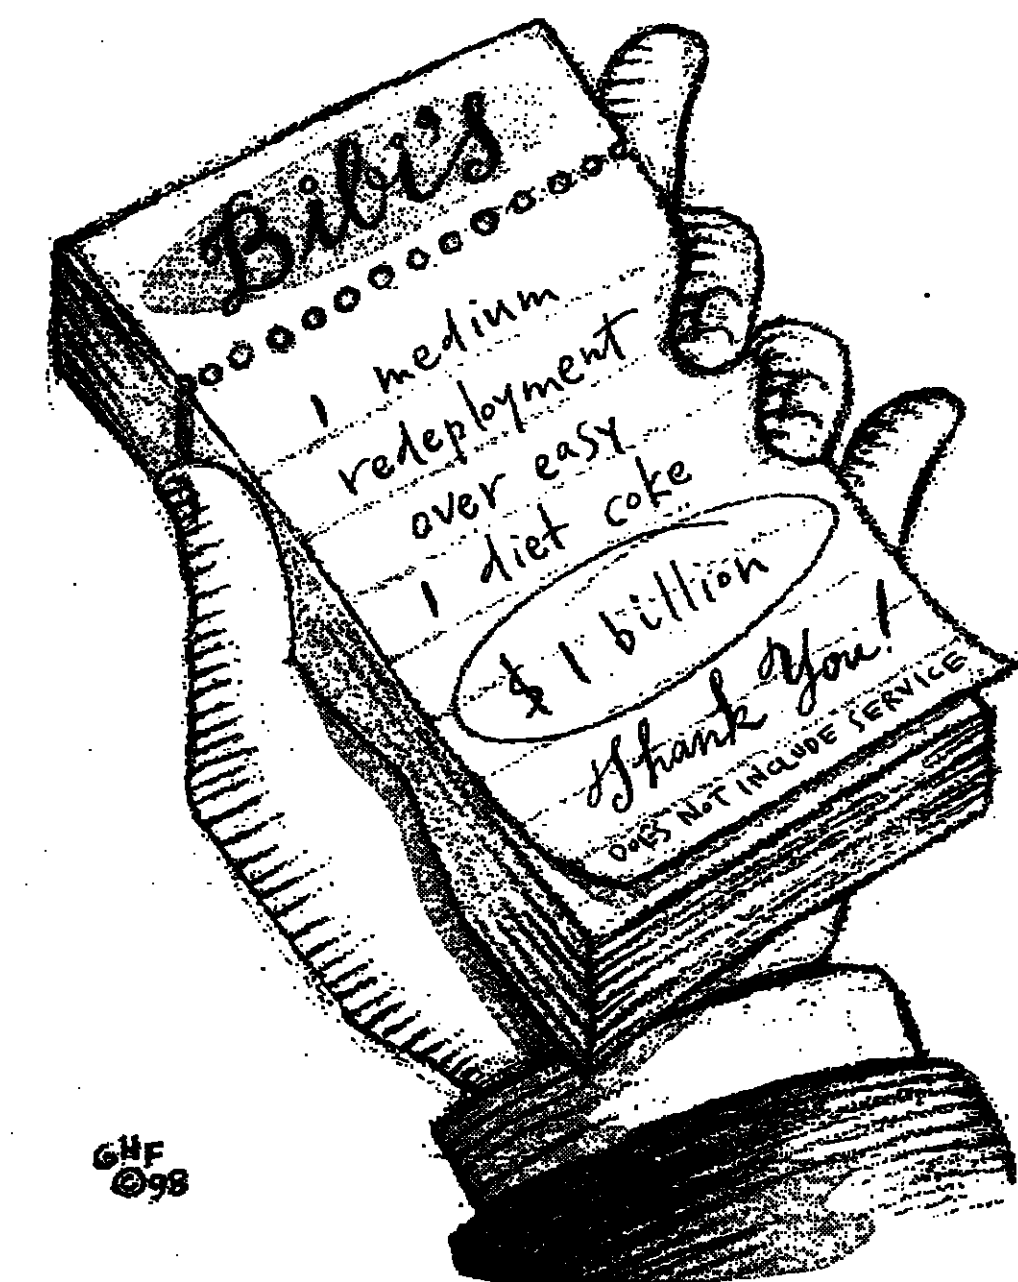 Bibi's
1 medium
redeployment
over easy
1 diet coke
$ 1 billion
Thank You!
DOES NOT INCLUDE SERVICE
GHF
©98